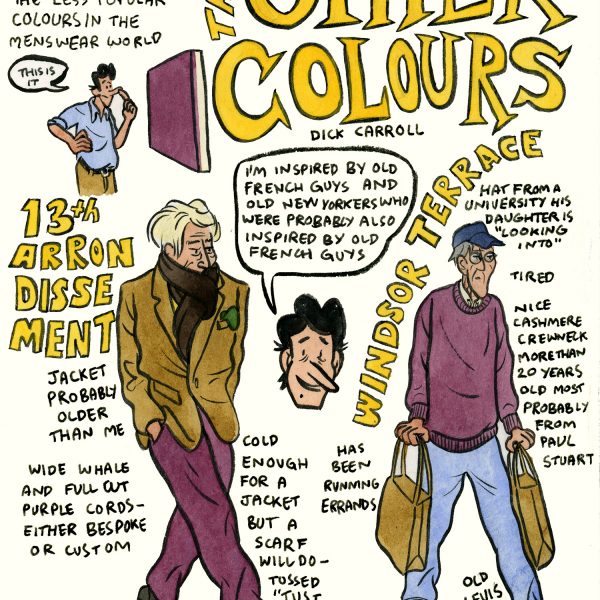 THE LESS POPULAR
COLOURS IN THE
MENSWEAR WORLD
THIS IS
IT
OTHER
COLOURS
DICK CARROLL
I'M INSPIRED BY OLD
FRENCH GUYS AND
OLD NEW YORKERS WHO
WERE PROBABLY ALSO
INSPIRED BY OLD
FRENCH GUYS
13th
ARRON
DISSE
MENT
JACKET
PROBABLY
OLDER
THAN ME
WIDE WHALE
AND FULL CUT
PURPLE CORDS-
EITHER BESPOKE
OR CUSTOM
COLD
ENOUGH
FOR A
JACKET
BUT A
SCARF
WILL DO-
TOSSED
"JUST
WINDSOR TERRACE
HAT FROM A
UNIVERSITY HIS
DAUGHTER IS
"LOOKING
INTO"
TIRED
NICE
CASHMERE
CREWNECK
MORE THAN
20 YEARS
OLD MOST
PROBABLY
FROM
PAUL
STUART
HAS
BEEN
RUNNING
ERRANDS
OLD
LEVIS